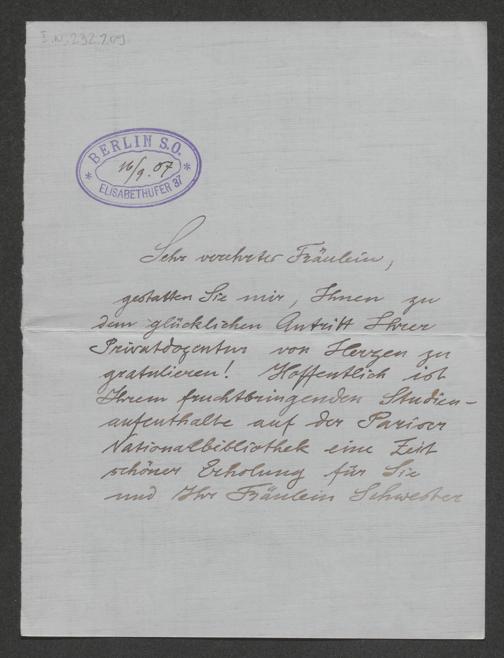 I.N. 232.209
BERLIN S.O.
16/9. 07
ELISABETHUFER 37
Sehr verehrtes Fräulein,
gestatten Sie mir, Ihnen zu
dem glücklichen Antritt Ihrer
Privatdozentur von Herzen zu
gratulieren! Hoffentlich ist
Ihrem fruchtbringenden Studien-
aufenthalte auf der Pariser
Nationalbibliothek eine Zeit
schöner Erholung für Sie
und Ihr Fräulein Schwester